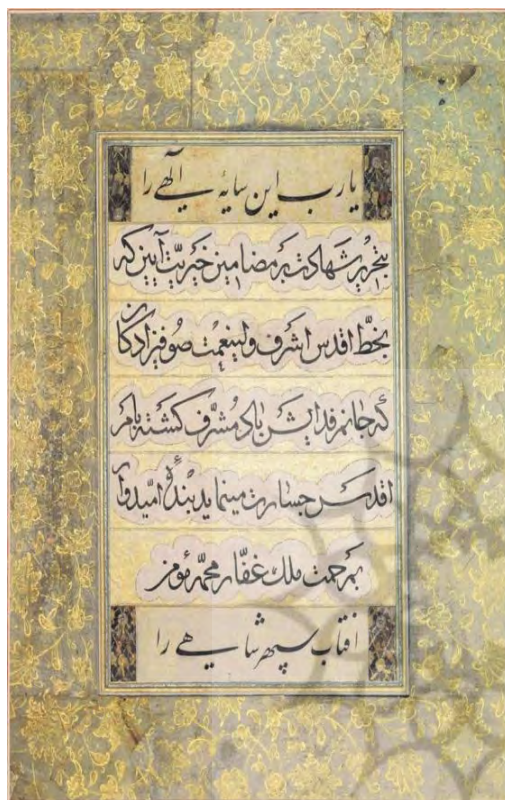 یارب این سایهٔ الهی را
بتحریر شهادت بر مضامین خیریت آیین که
بخط اقدس اشرف ولینعمت صوفیزادکان
که جانم فدایش باد مشرف کشته بامر
اقدس جسارت مینماید بندهٔ امیدوار
بمرحمت ملک غفار محمد مؤمن
افتاب سپهر شاهی را